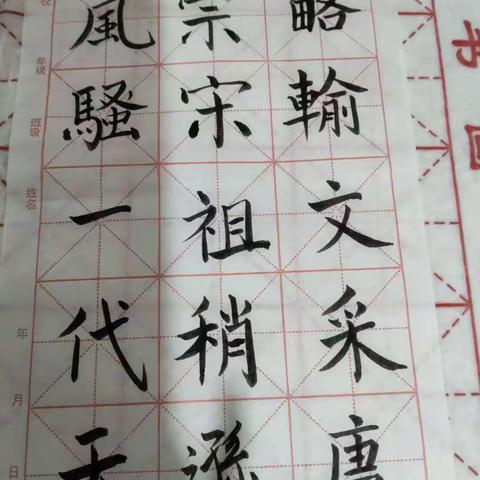 略輸文采唐
宗宋祖稍遜
風騷一代天
年级
班级
姓名
年
月
日
书